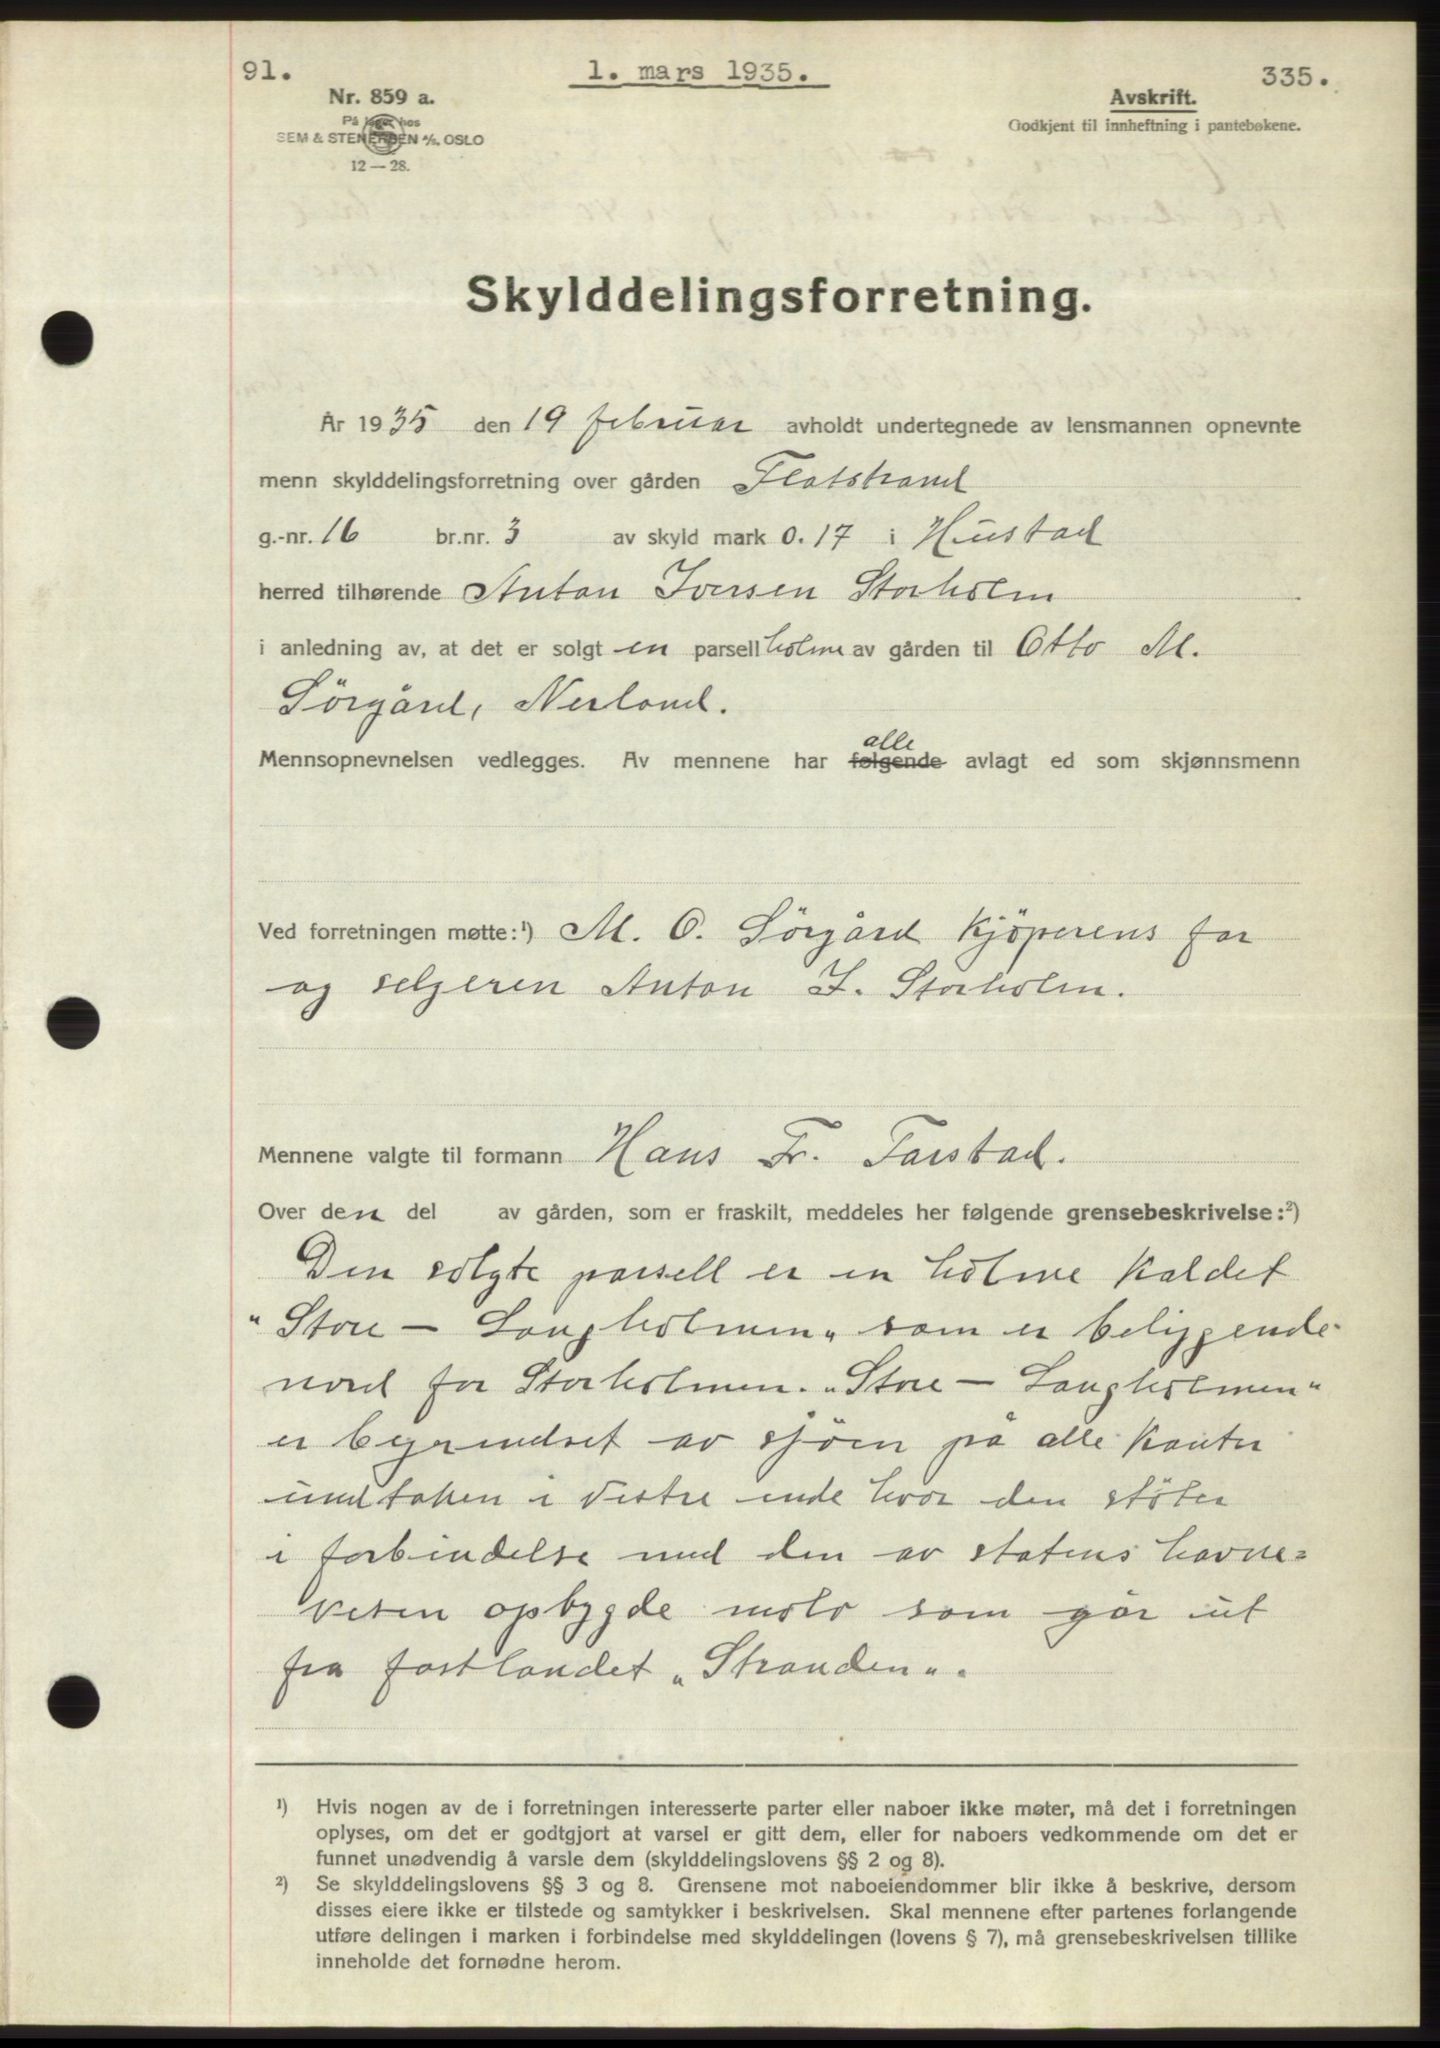 91.
1. mars 1935.
335.
Nr. 859 a.
På lager hos
SEM & STENERSEN A/S. OSLO
12 — 28.
Avskrift.
Godkjent til innheftning i pantebøkene.
Skylddelingsforretning.
År 1935 den 19 februar avholdt undertegnede av lensmannen opnevnte
menn skylddelingsforretning over gården Flatstrand
g.-nr. 16 br.nr. 3 av skyld mark 0.17 i Hustad
herred tilhørende Anton Iversen Storholm
i anledning av, at det er solgt en parsell holme av gården til Otto M.
Sörgård, Nerland.
alle
Mennsopnevnelsen vedlegges. Av mennene har følgende avlagt ed som skjønnsmenn
Ved forretningen møtte:¹) M. O. Sörgård kjöperens far
og selgeren Anton I. Storholm.
Mennene valgte til formann Hans Fr. Farstad.
Over den del av gården, som er fraskilt, meddeles her følgende grensebeskrivelse:²)
Den solgte parsell er en holme kaldet
"Store - Langholmen" som er beliggende
nord for Storholmen. "Store - Langholmen"
er begrendset av sjöen på alle kanter
undtaken i vestre ende hvor den stöter
i forbindelse med den av statens havne=
vesen opbygde molo som går ut
fra fastlandet "Stranden".
¹) Hvis nogen av de i forretningen interesserte parter eller naboer ikke møter, må det i forretningen
oplyses, om det er godtgjort at varsel er gitt dem, eller for naboers vedkommende om det er
funnet unødvendig å varsle dem (skylddelingslovens §§ 2 og 8).
²) Se skylddelingslovens §§ 3 og 8. Grensene mot naboeiendommer blir ikke å beskrive, dersom
disses eiere ikke er tilstede og samtykker i beskrivelsen. Skal mennene efter partenes forlangende
utføre delingen i marken i forbindelse med skylddelingen (lovens § 7), må grensebeskrivelsen tillike
inneholde det fornødne herom.